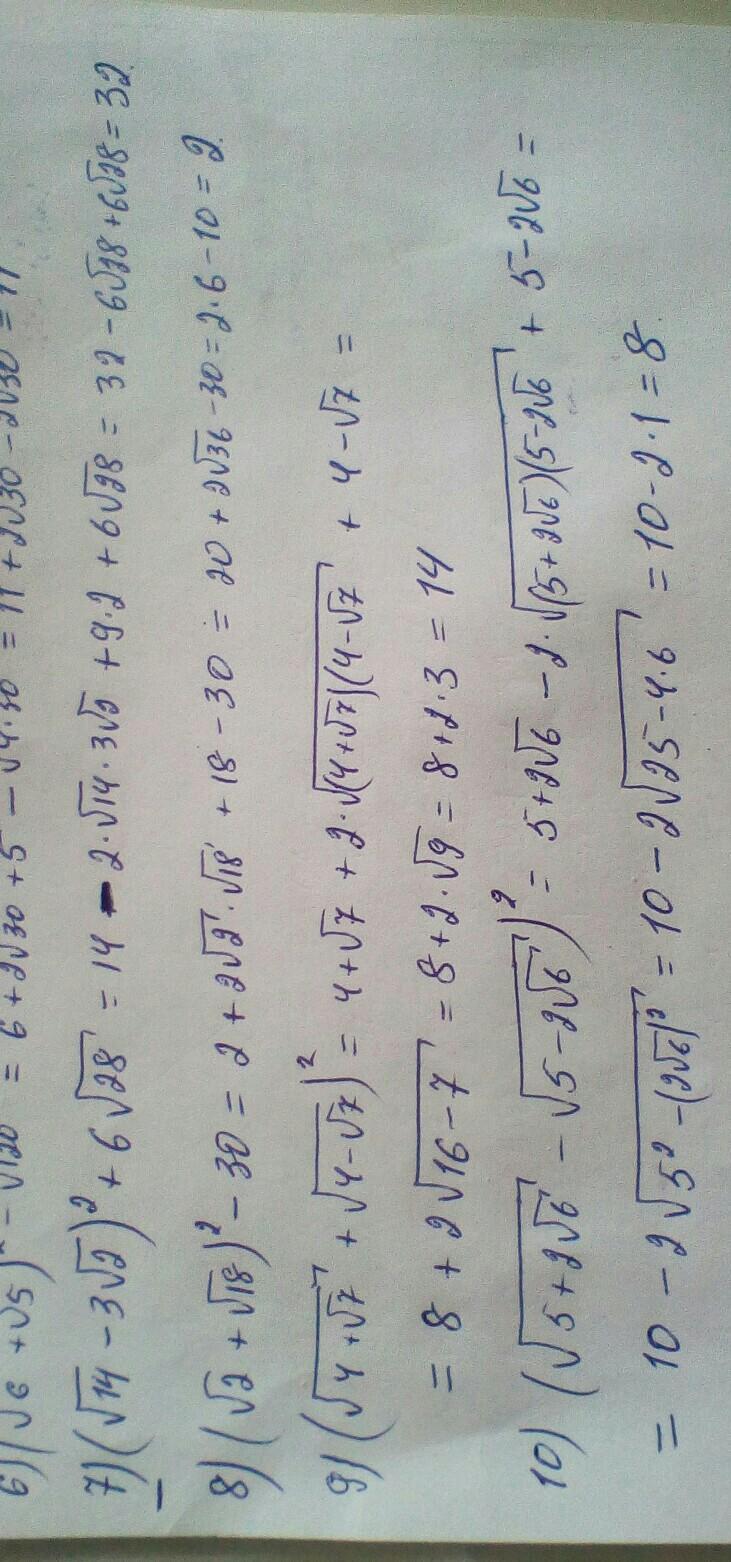 6) (√6 + √5)² - √120 = 6 + 2√30 + 5 - √4·30 = 11 + 2√30 - 2√30 = 11
7) (√14 - 3√2)² + 6√28 = 14 - 2·√14·3√2 + 9·2 + 6√28 = 32 - 6√28 + 6√28 = 32
8) (√2 + √18)² - 30 = 2 + 2√2·√18 + 18 - 30 = 20 + 2√36 - 30 = 2·6 - 10 = 2
9) (√(4+√7) + √(4-√7))² = 4+√7 + 2·√((4+√7)(4-√7)) + 4-√7 =
= 8 + 2√(16-7) = 8+2·√9 = 8+2·3 = 14
10) (√(5+2√6) - √(5-2√6))² = 5+2√6 - 2·√((5+2√6)(5-2√6)) + 5-2√6 =
= 10 - 2√(5²-(2√6)²) = 10 - 2√(25-4·6) = 10-2·1 = 8